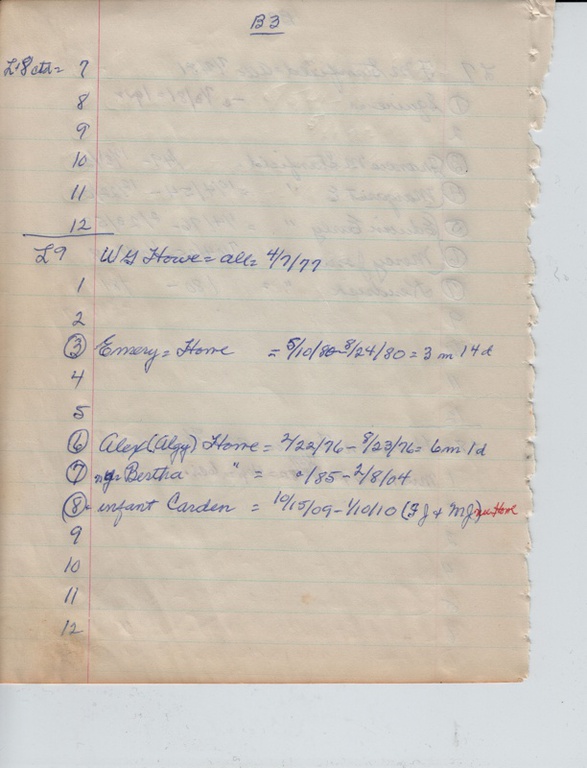 B3
L+8 ctd = 7
8
9
10
11
12
L9 WG Howe = all = 4/7/77
1
2
3 Emery = Howe = 5/10/80-8/24/80 = 3 m 14 d
4
5
6 Alex (Algy) Howe = 2/22/76 - 8/23/76 = 6m 1d
7 Bertha " = /85 - 2/8/04
8 - infant Carden = 10/15/09 - 1/10/10 (F J & M J) nee Howe
9
10
11
12